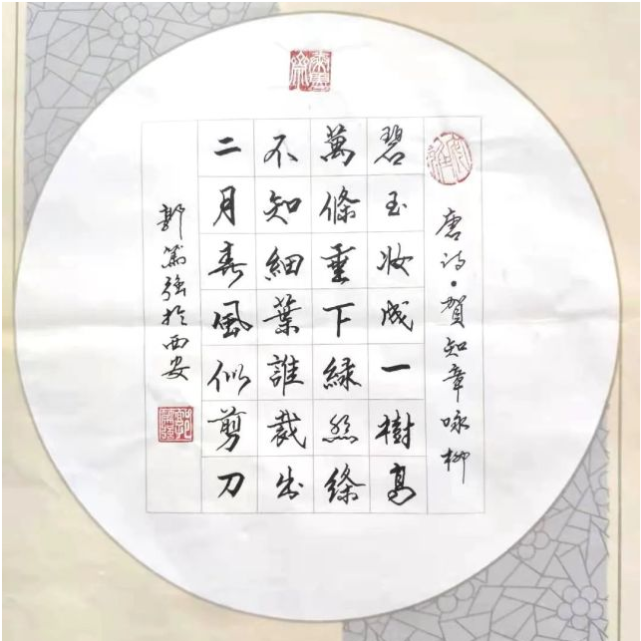 唐诗·賀知章咏柳
碧玉妆成一樹高
萬條垂下緑絲絛
不知細葉誰裁出
二月春風似剪刀
郭篤强於西安